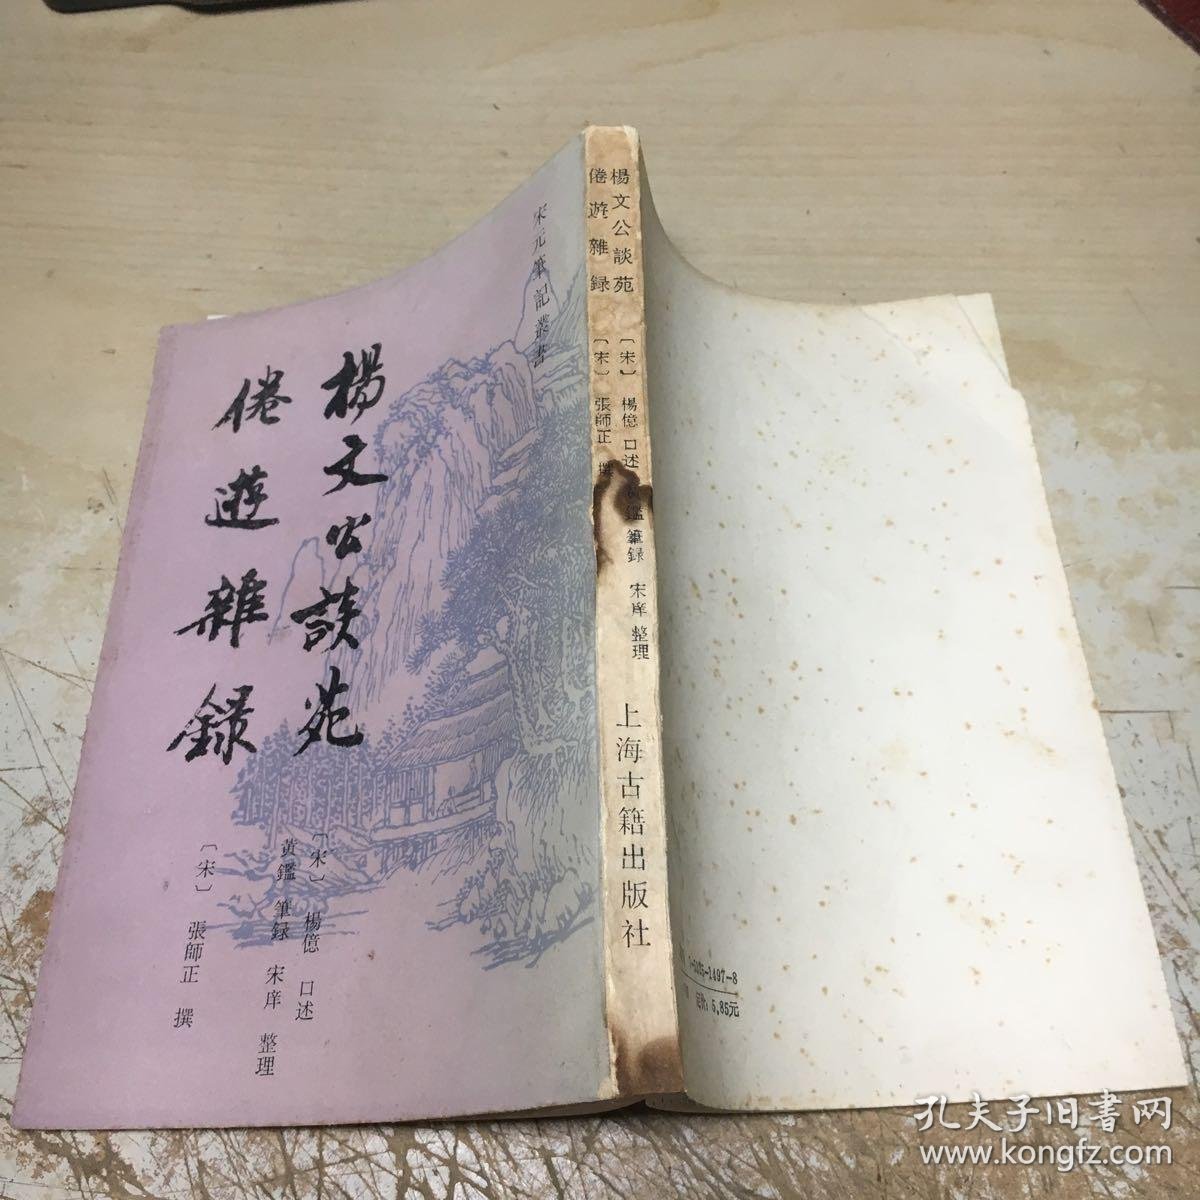 宋元筆記叢書
楊文公談苑
倦遊雜録
〔宋〕 楊億 口述
黄鑑 筆録 宋庠 整理
〔宋〕 張師正 撰
楊文公談苑 〔宋〕 楊億 口述 鑑 筆録 宋庠 整理
倦遊雜録 〔宋〕 張師正 撰
上海古籍出版社
5325-1497-8
定价: 5.85元
孔夫子旧書网
www.kongfz.com